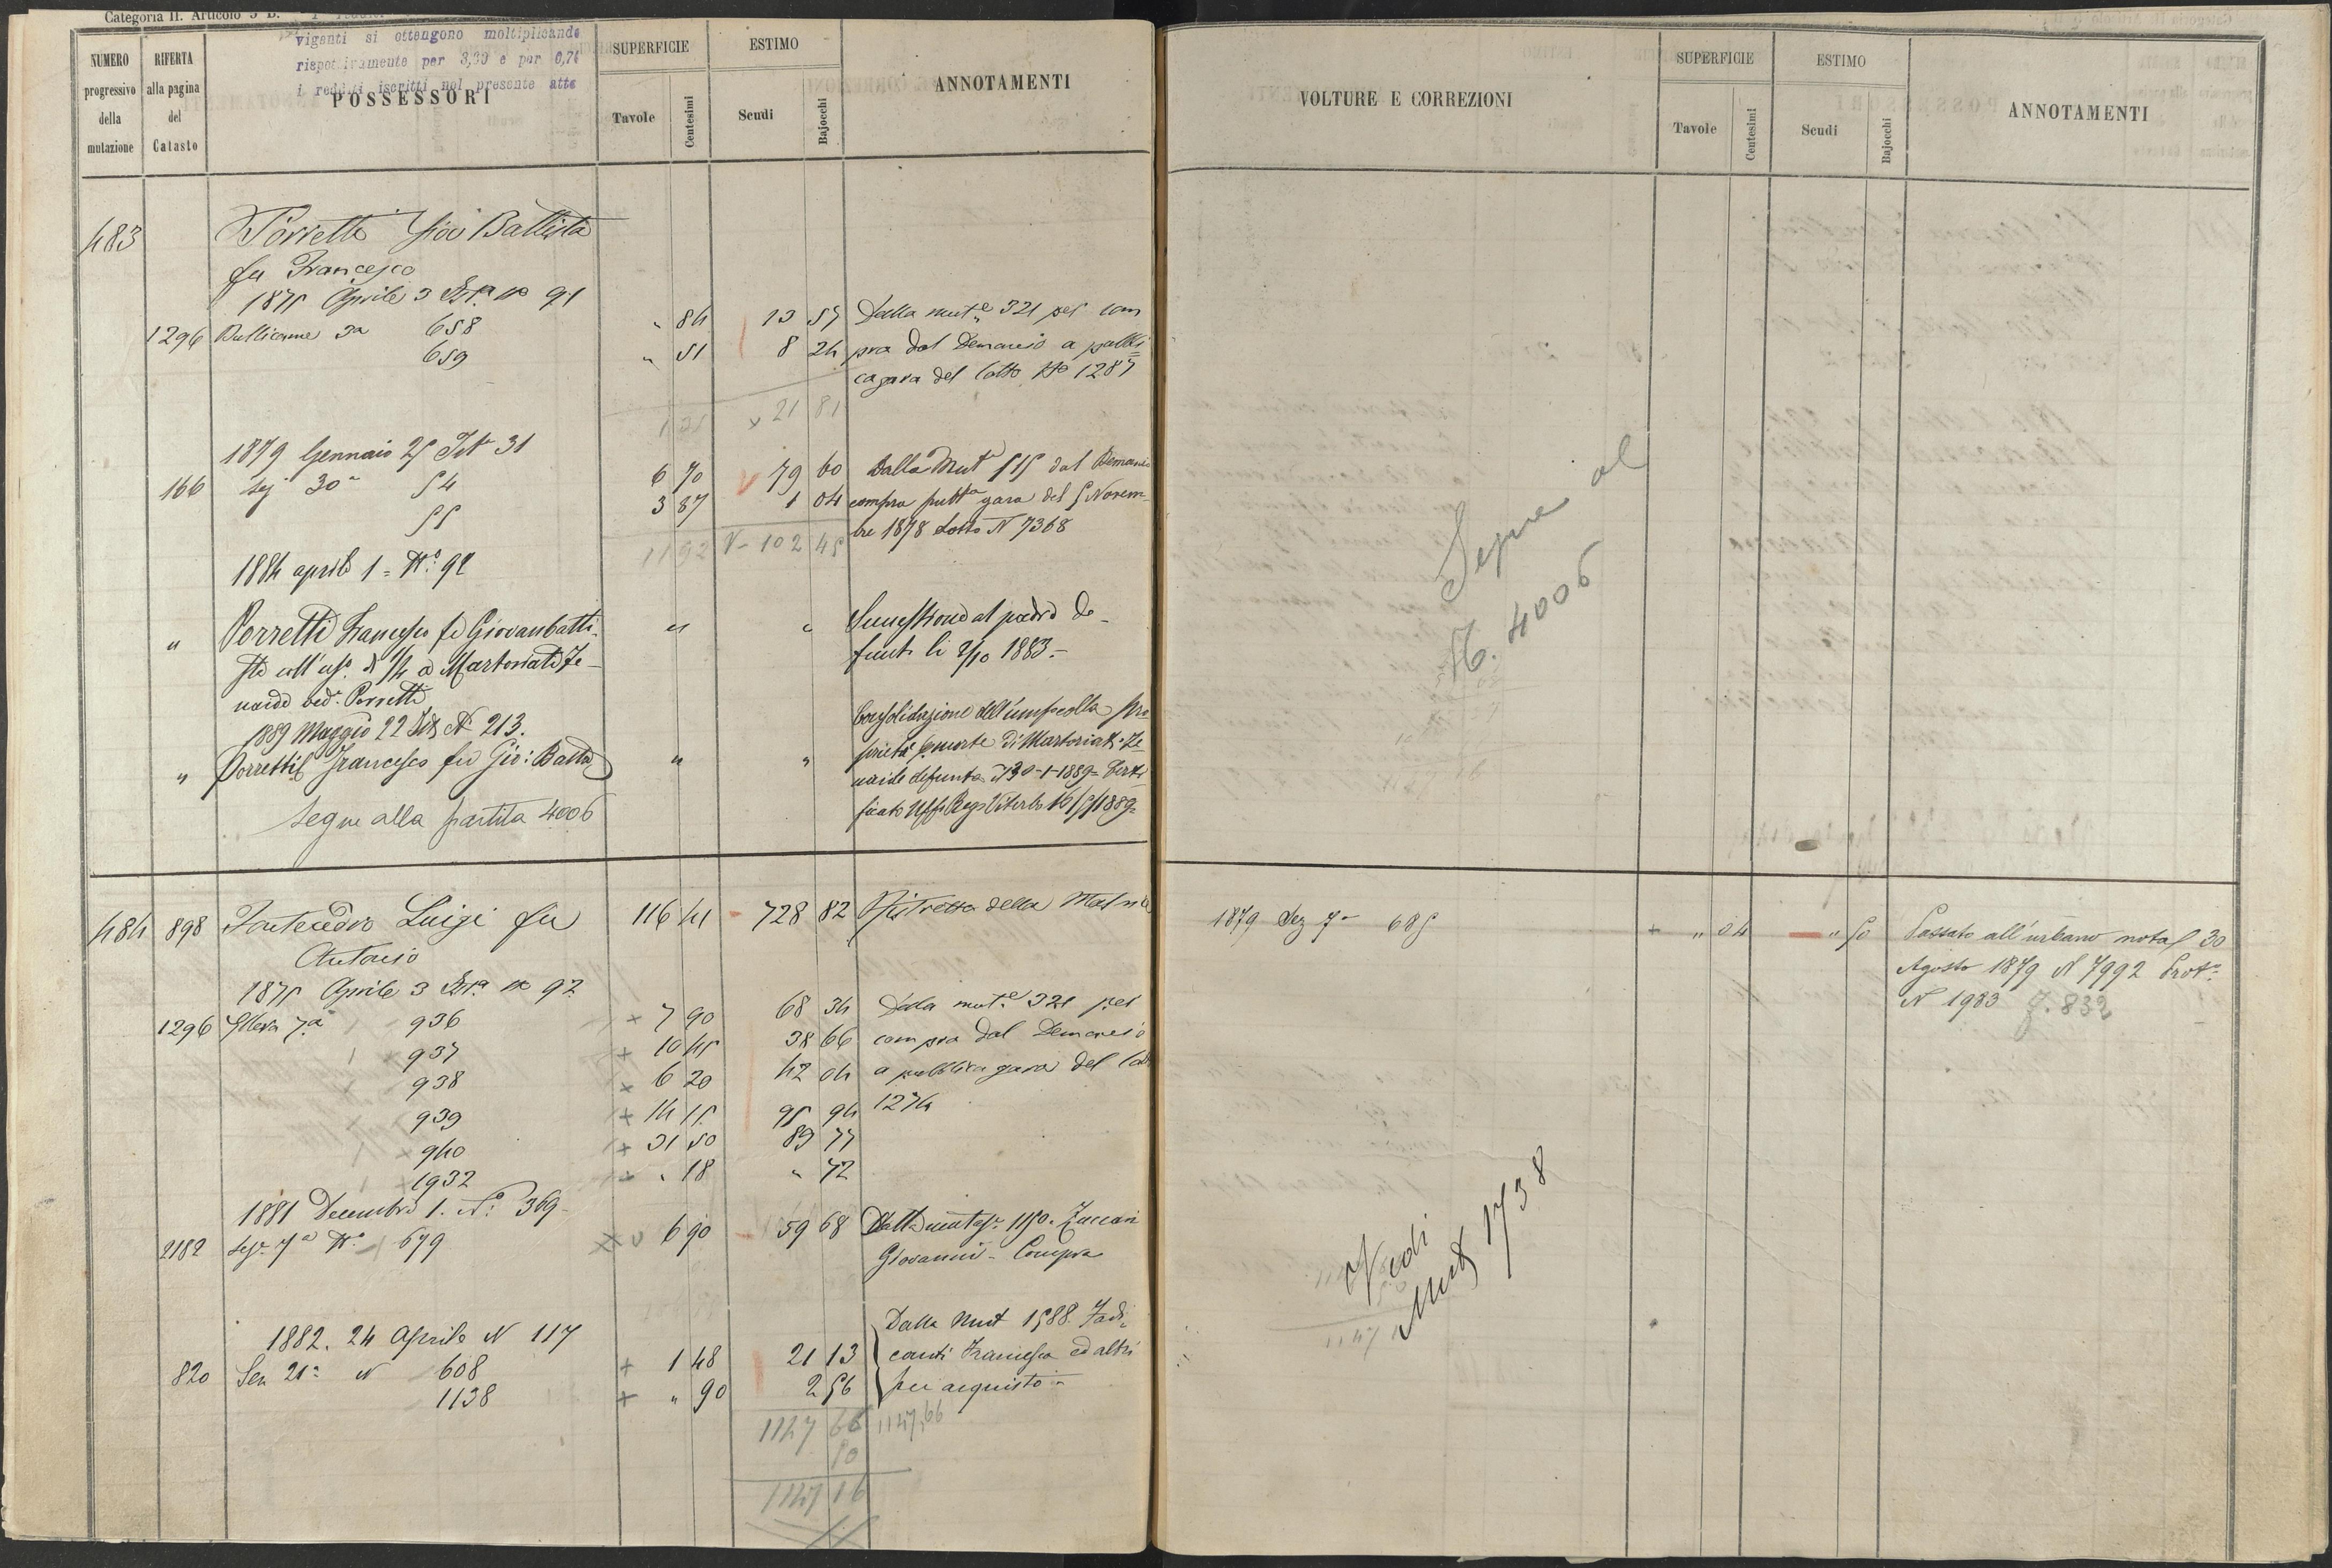 Categoria II. Articolo 3 B.
vigenti si ottengono moltiplicando
rispettivamente per 3,00 e per 0,74
i redditi iscritti nel presente atto
NUMERO progressivo della mutazione
RIFERTA alla pagina del Catasto
POSSESSORI
SUPERFICIE
Tavole Centesimi
ESTIMO
Scudi Bajocchi
ANNOTAMENTI
483 Porretti Gio Battista
fu Francesco
1875 Aprile 3 No 91
1296 Bullicame 3a 658 " 84 13 57 Dalla mute 321 per com
659 " 51 8 24 pra dal Demanio a pubbli
ca gara del lotto No 1287
1 35 21 81
1879 Gennaio 25 Tit 31
166 Sez 30a 54 6 70 79 60 Dalla Mut 515 dal Demanio
55 3 87 1 04 compra pubba gara del 5 Novem-
bre 1878 Lotto N 7368
11 92 102 45
1884 aprile 1 = No 92
" Porretti Francesco fu Giovanbatti- " " Successione al padre de-
sta coll'uso di 1/4 a Martoriati Ze- funto li 2/10 1883.-
naide ved. Porretti
1889 Maggio 22 Tit N. 213.
Consolidazione dell'usufrutto alla pro
" Porretti Francesco fu Gio: Batta " " prietà p. morte di Martoriati Ze
naide defunta il 30-1-1889= Certi
ficato Uff. Reg. Viterbo 16/5/1889=
Segue alla partita 4006
484 898 Luigi fu 116 41 728 82 Ristretto della
Antonio
1875 Aprile 3 No 92
1296 7a 936 7 90 68 34 Dalla mute 321 per
937 10 45 38 66 compra dal Demanio
938 6 20 42 04 a pubblica gara del
939 14 15 95 94 1274
940 31 50 89 77
1932 " 18 " 72
1881 Decembre 1. No 369-
2182 Sez. 7a No 679 6 90 59 68 Dalla 1150. Zuccari
Giovanni - Compra
1882. 24 Aprile N 117 Dalla Mut 1588
820 Sez 21a N 608 1 48 21 13 Francesco ed altri
1138 " 90 2 56 per acquisto -
1147 66 1147,66
50
1147 16
VOLTURE E CORREZIONI
SUPERFICIE
Tavole Centesimi
ESTIMO
Scudi Bajocchi
ANNOTAMENTI
Segue al
N. 4006
1879 Sez 7a 685 + " 04 " 50 Passato all'urbano 30
Agosto 1879 N 7992 Proto
N 1983 f. 832
Vedi
Mut 1738